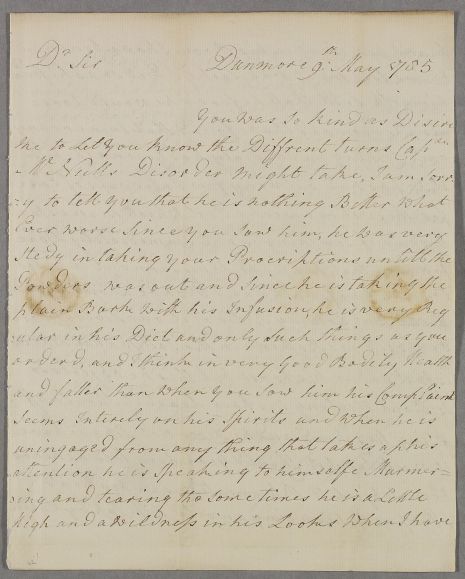 Dr Sir Dunmore 9th May 1785
You was so kind as Disire
me to Let you know the Diffrent turns Captn
Mc Nutts Disorder might take, I am Sorr
ry to tell you that he is nothing Better What
Ever worse Since you Saw him, he was very
Stedy in taking your Procriptions untill the
Powders was out and Since he is taking the
plain Bark with his Infusion, he is very Reg
ular in his Diet and only Such things as you
orderd, and I think in very Good Bodily Health
and fatter than When you Saw him his Complaint
Seems Intirely on his Spirits and when he is
uningaged from any thing that takes up his
attention he is Speaking to himselfe Murmer=
ring and tearing tho Some times he is a Little
High and a wildness in his Looks When I have